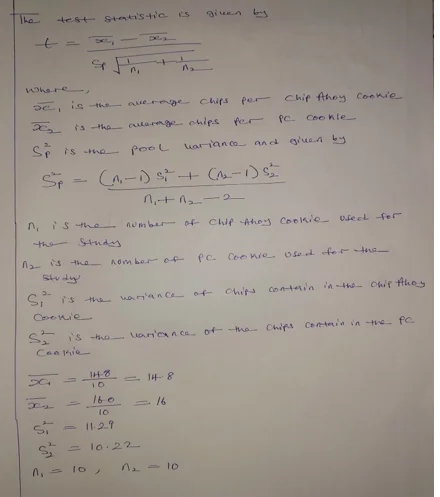 The test statistic is given by
t = x̄₁ - x̄₂ / Sp √(1/n₁ + 1/n₂)
where,
x̄₁ is the average chips per chip Ahoy cookie
x̄₂ is the average chips per PC cookie
Sp² is the pool variance and given by
Sp² = (n₁-1) S₁² + (n₂-1) S₂² / n₁ + n₂ - 2
n₁ is the number of chip Ahoy cookie used for
the study
n₂ is the number of PC cookie used for the
study
S₁² is the variance of chips contain in the chip Ahoy
cookie
S₂² is the variance of the chips contain in the PC
cookie
x̄₁ = 148/10 = 14.8
x̄₂ = 160/10 = 16
S₁² = 11.29
S₂² = 10.22
n₁ = 10 , n₂ = 10